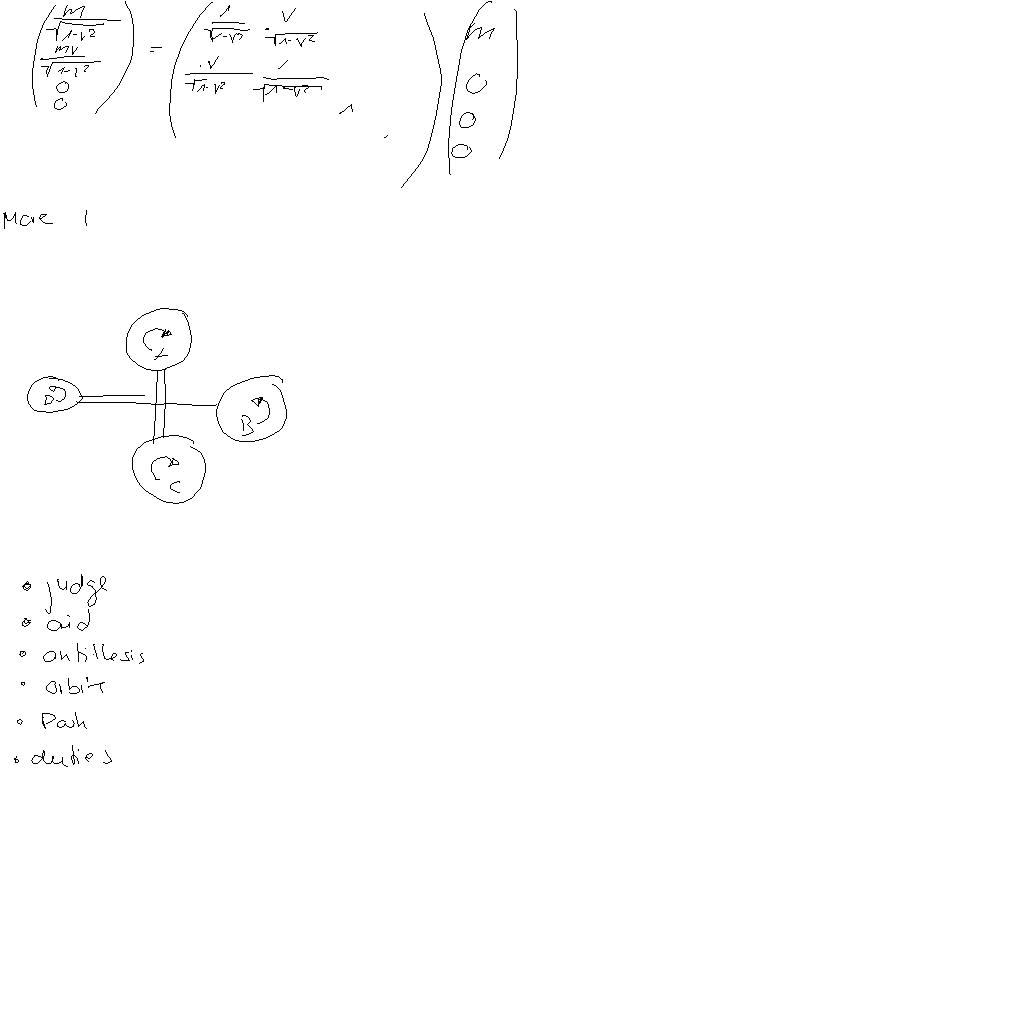 m/√1-v² = 1/√1-v² · v/√1-v² m
mv/√1-v² · v/√1-v² 1/√1-v² 0
0 1 0
0 · 0
More 1
A
D
B
C
• judge
• aid
• antithesis
• orbit
• Path
• duties